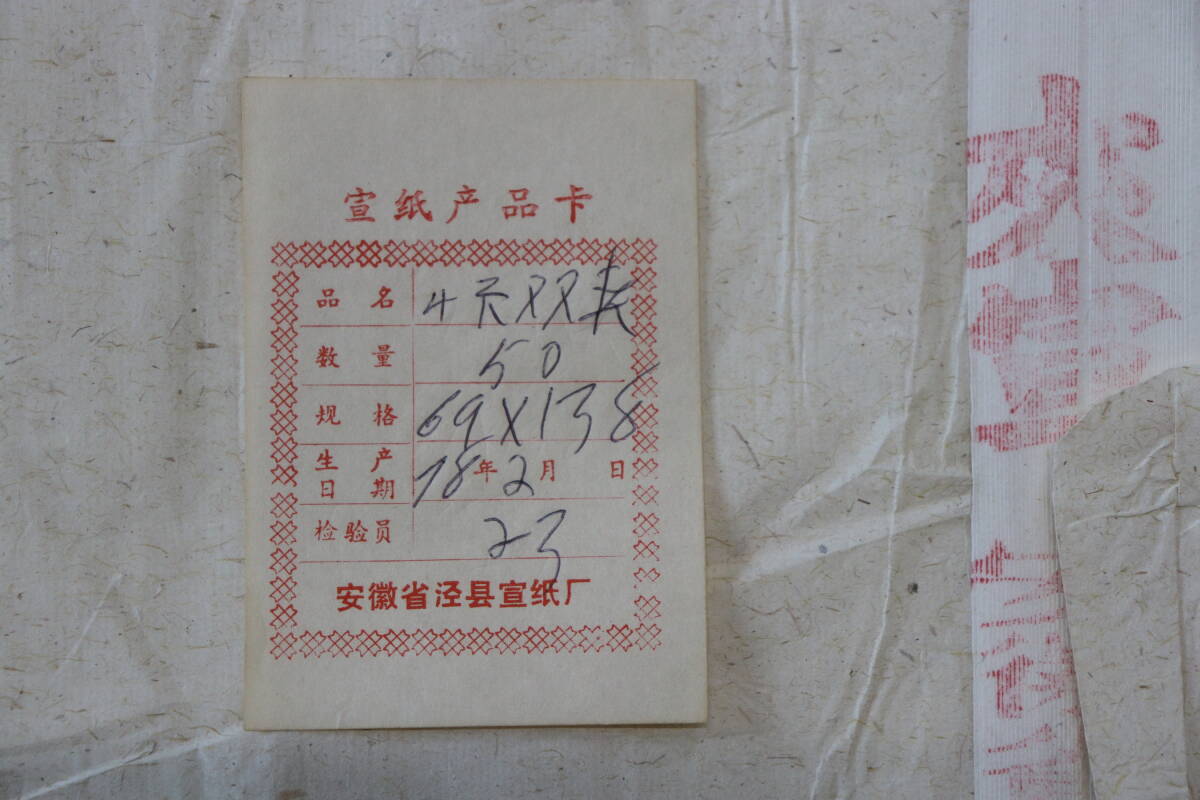 宣纸产品卡
品名 4尺双夹
数量 50
规格 69X138
生产日期 78年2月 日
检验员 23
安徽省泾县宣纸厂